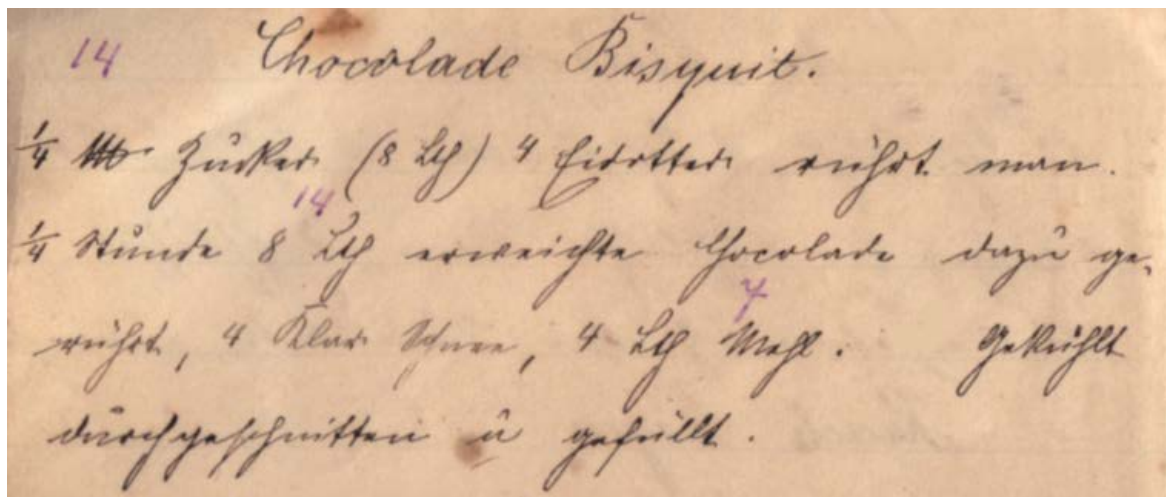 14 Chocolade Bisquit.
¼ Zucker (8 Lth) 4 Eidotter rührt man
14
¼ Stunde 8 Lth erweichte Chocolade dazu ge-
7
rührt, 4 Klar Schnee, 4 Lth Mehl. Gekühlt
durchgeschnitten u gefüllt.